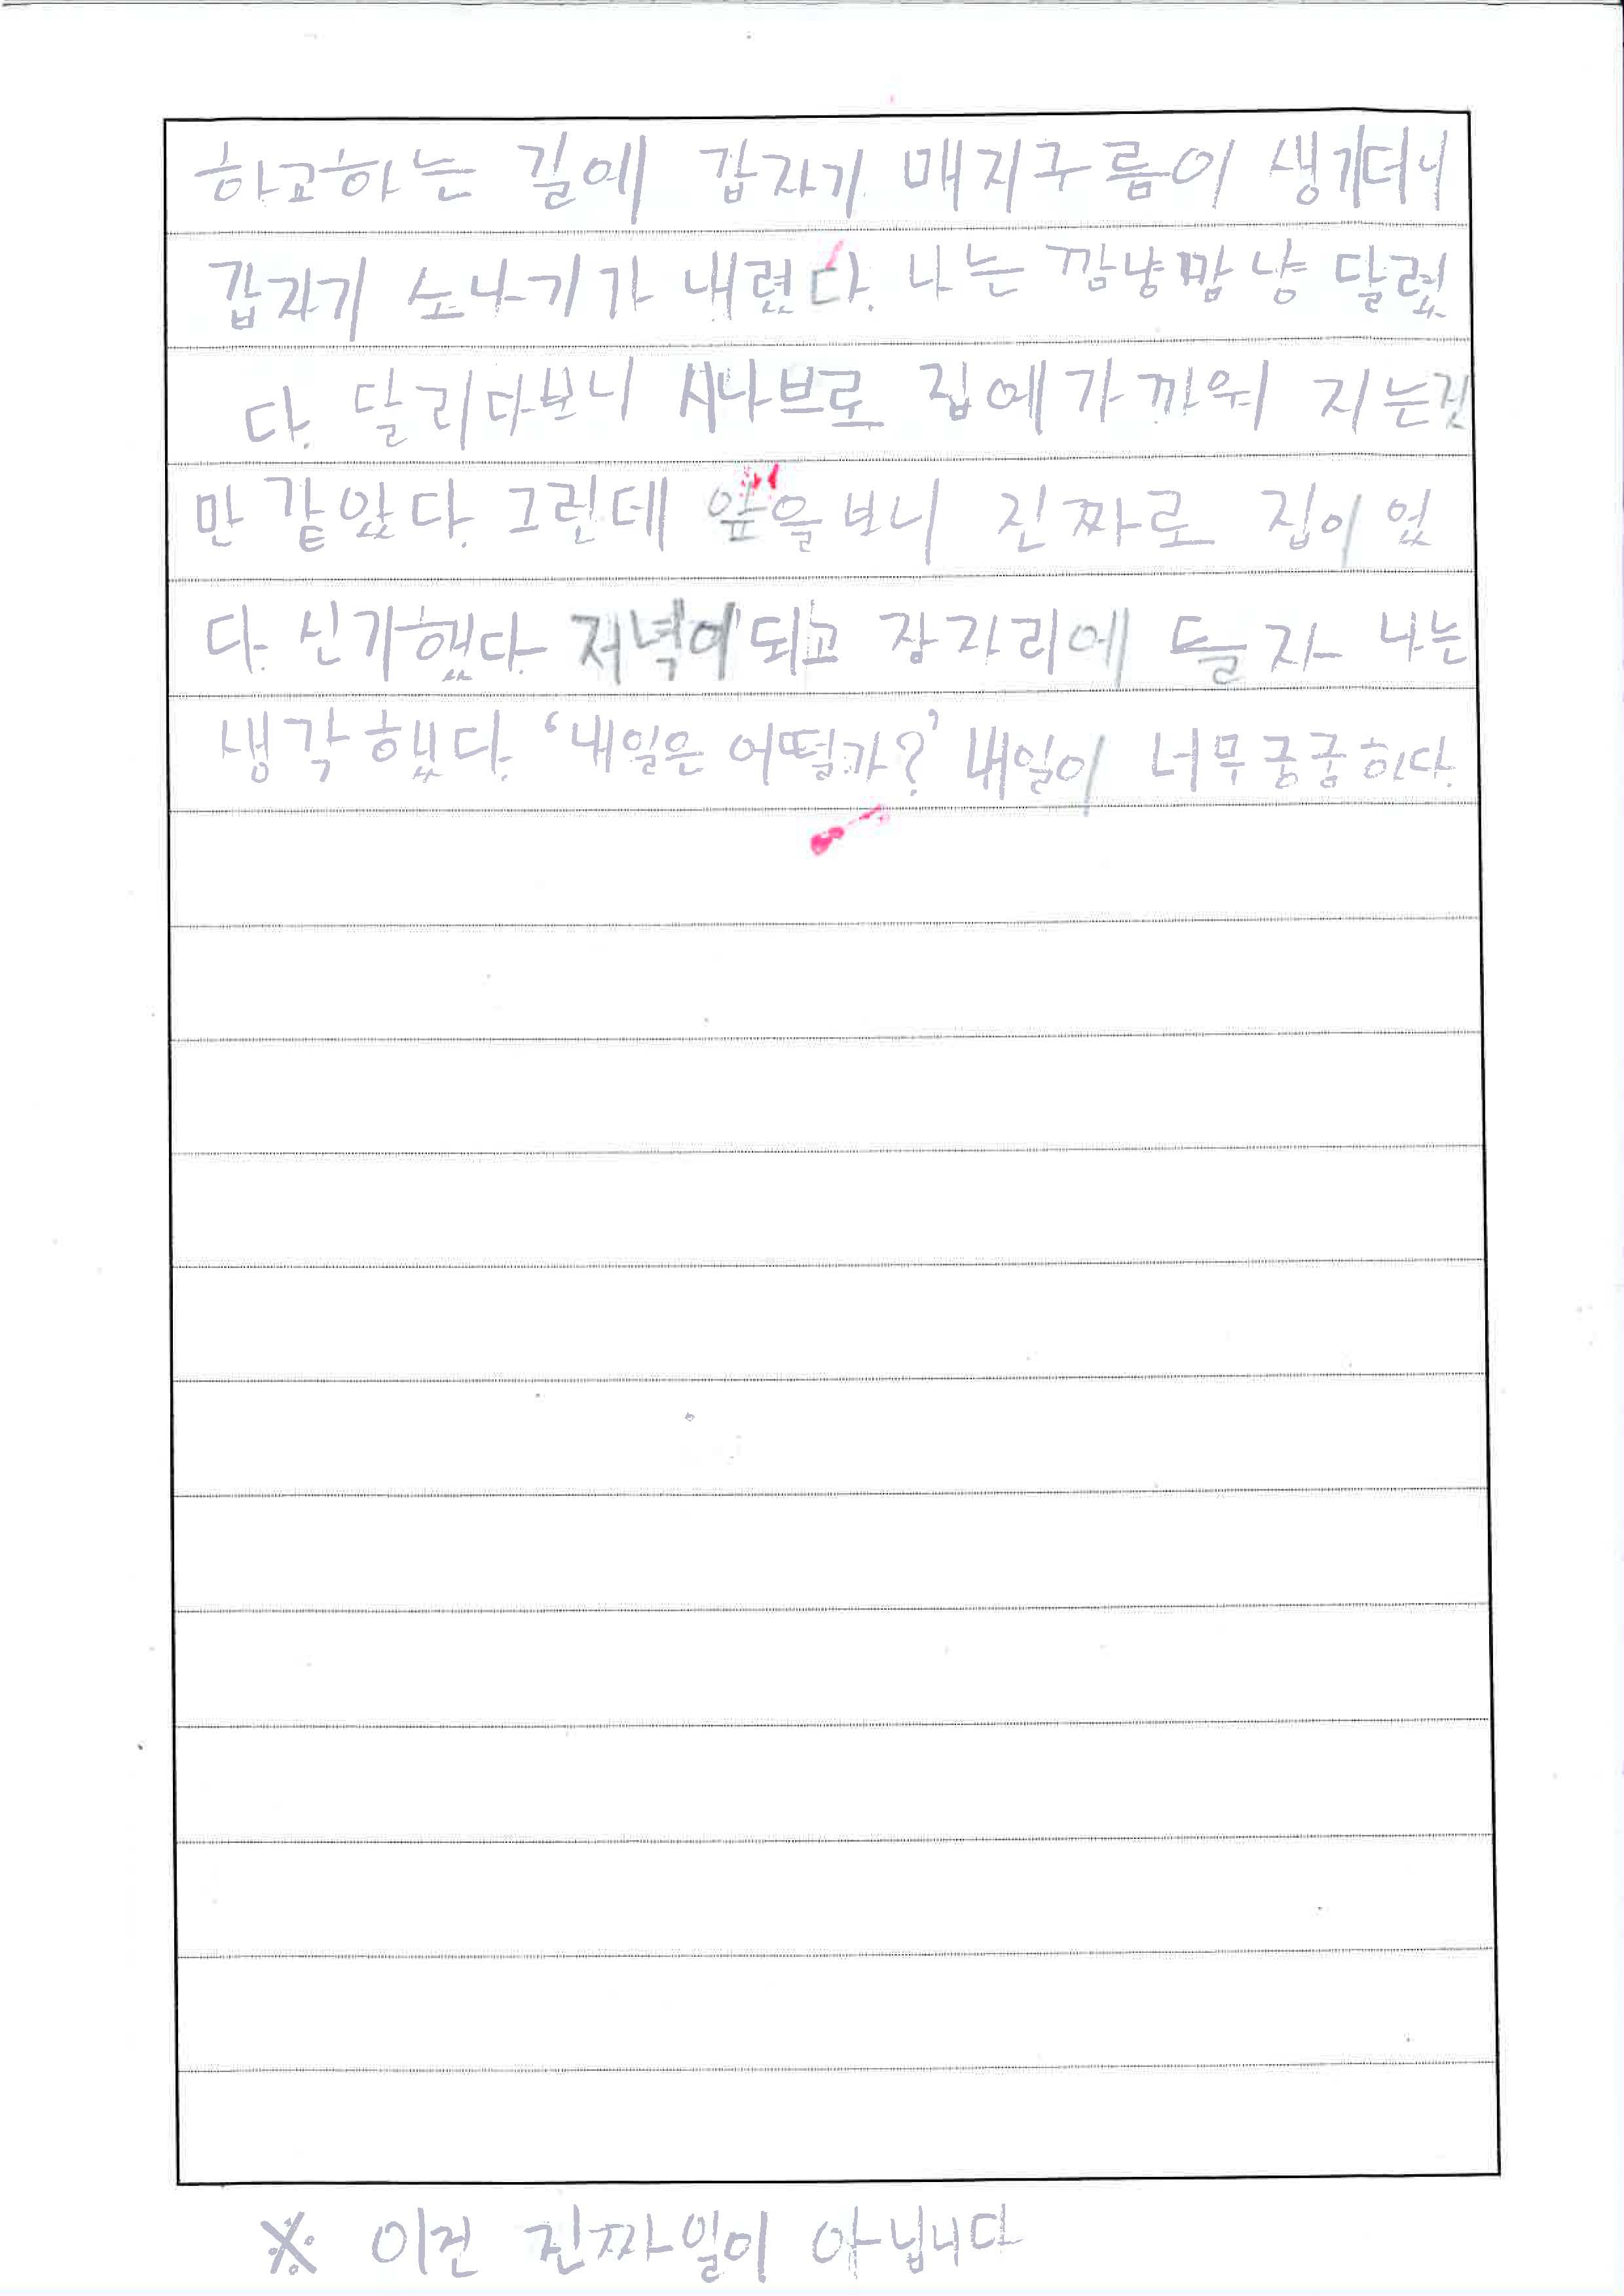 하교하는 길에 갑자기 매지구름이 생기더니
갑자기 소나기가 내렸다. 나는 깜냥깜냥 달렸
다. 달리다보니 시나브로 집에 가까워 지는것
만 같았다. 그런데 앞을 보니 진짜로 집이 었
다. 신기했다. 저녁이 되고 잠자리에 들자 나는
생각했다. ‘내일은 어떨까?’ 내일이 너무 궁궁하다.
※ 이건 진짜일이 아닙니다